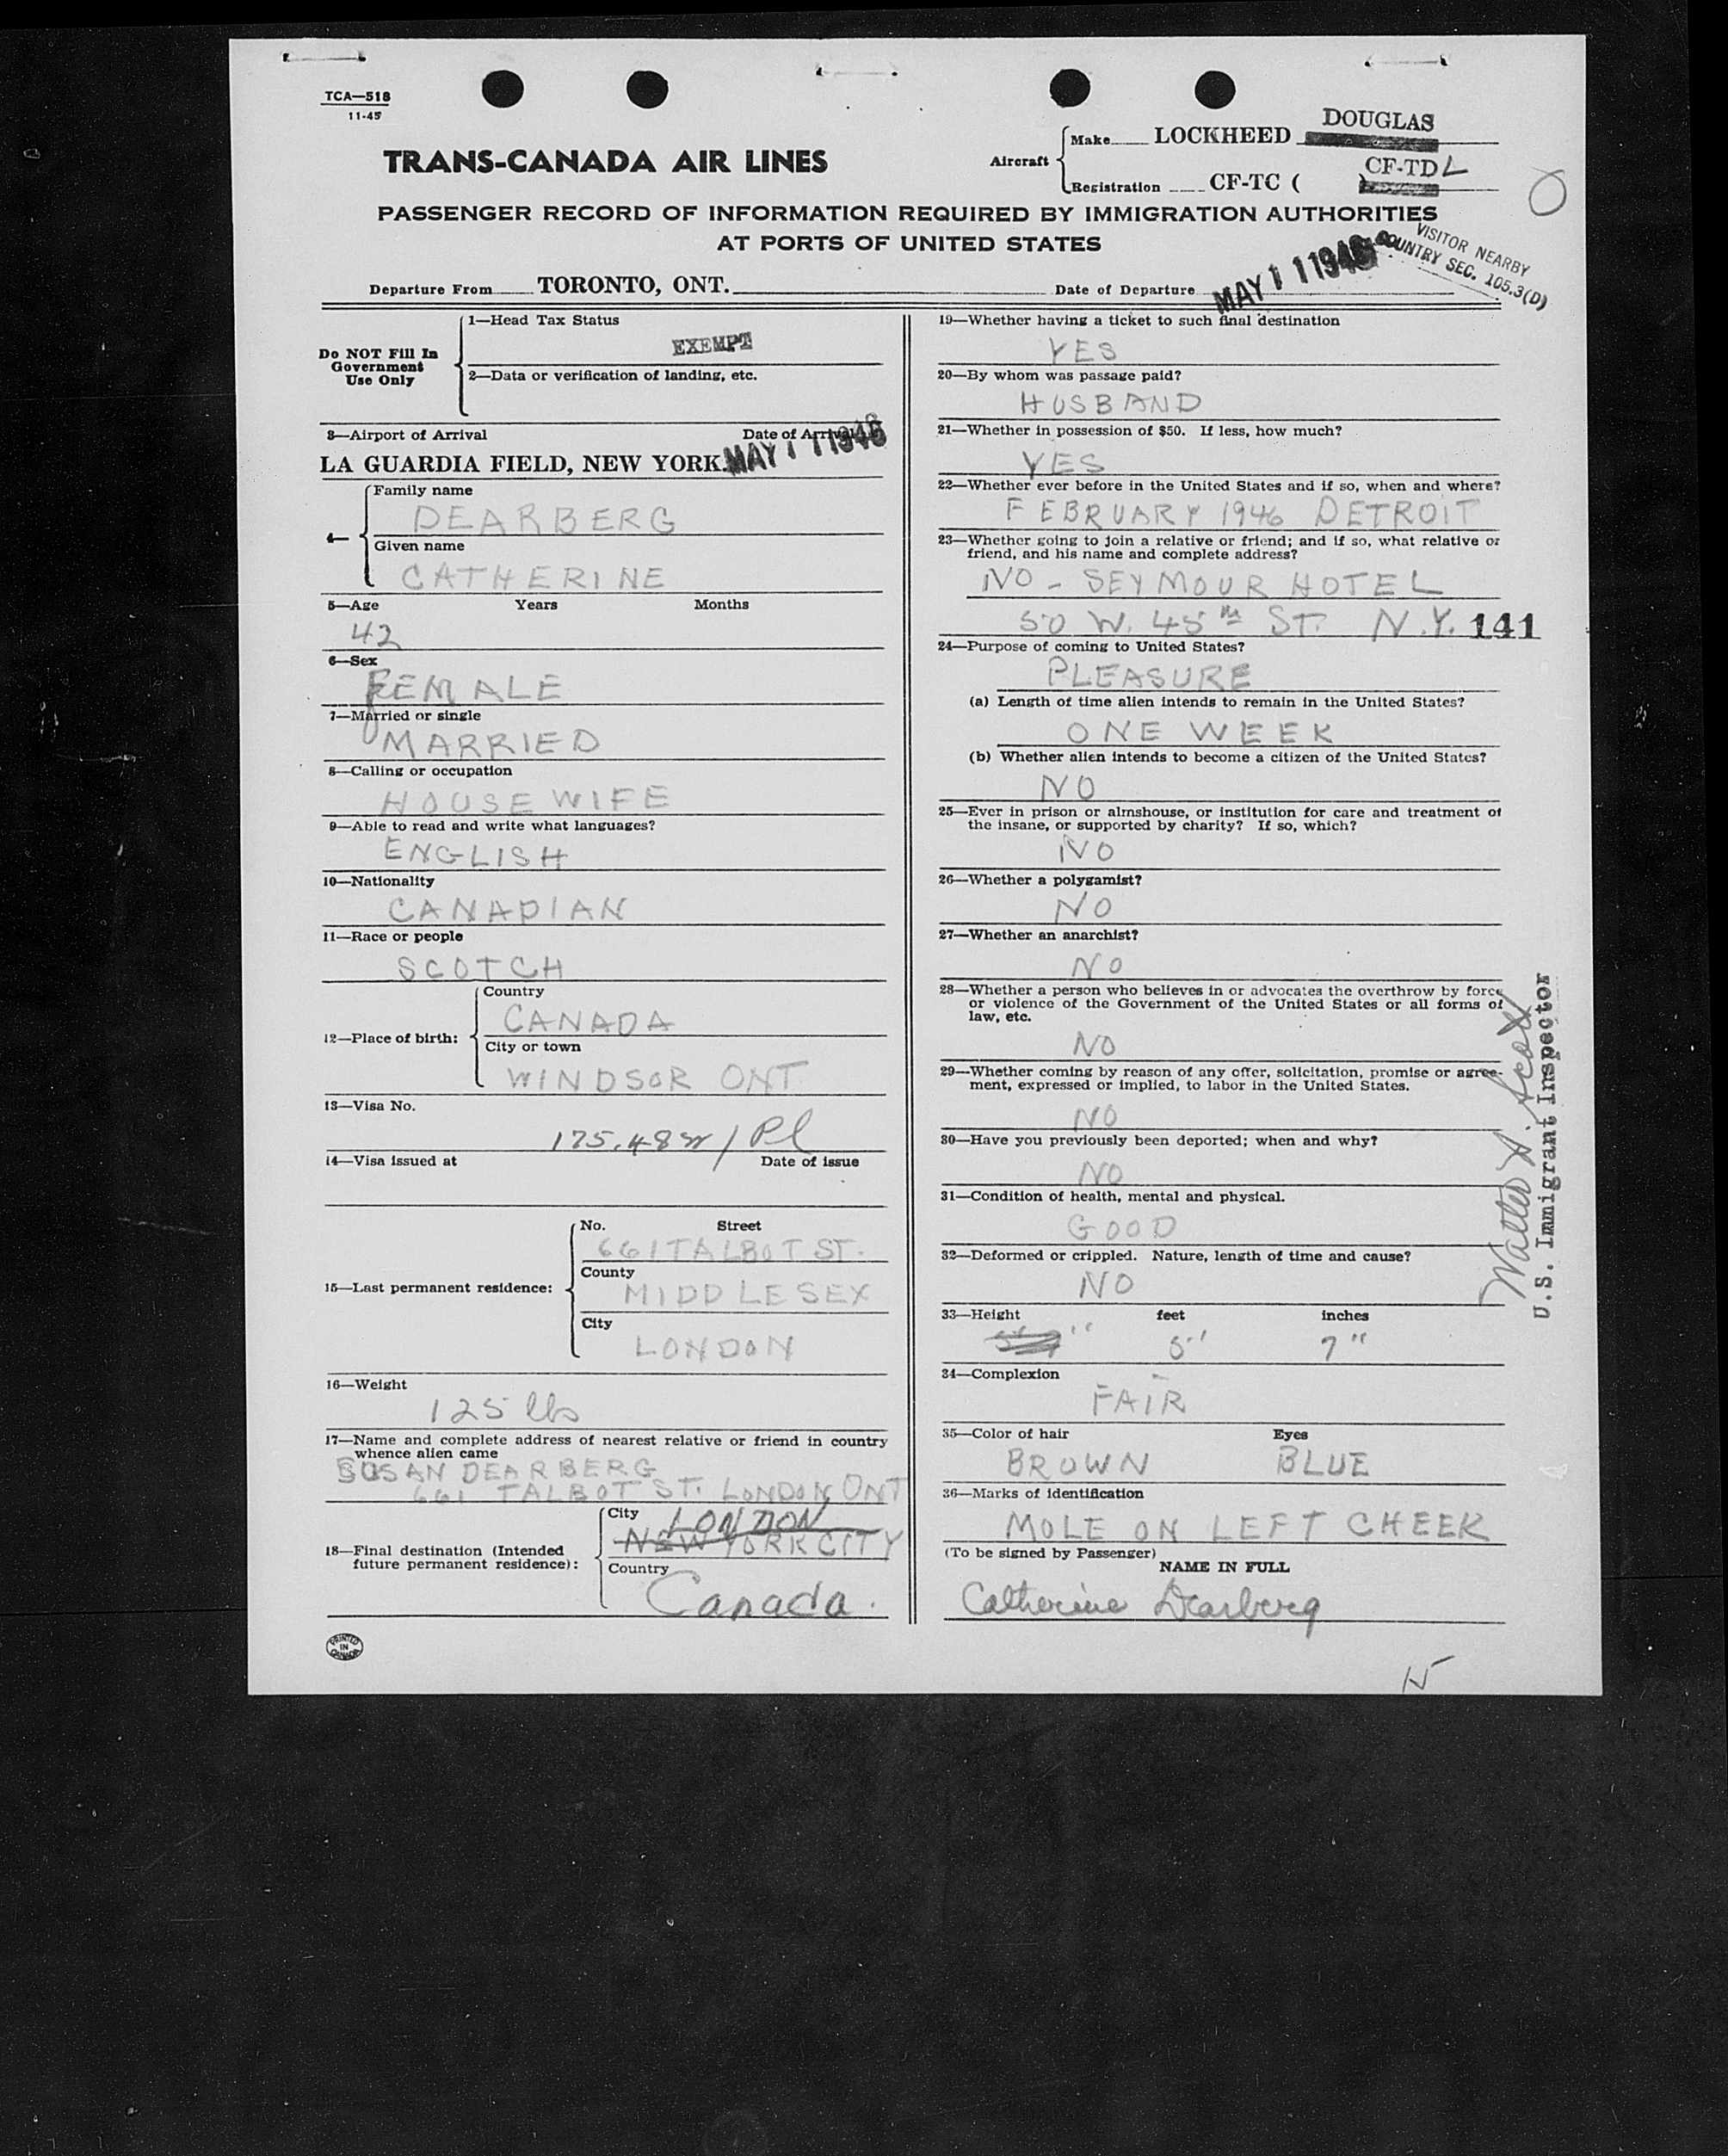 TCA—518
11-45
TRANS-CANADA AIR LINES
Aircraft
Make LOCKHEED DOUGLAS
Registration CF-TC ( ) CF-TDL
PASSENGER RECORD OF INFORMATION REQUIRED BY IMMIGRATION AUTHORITIES
AT PORTS OF UNITED STATES
VISITOR NEARBY
COUNTRY SEC. 105.3(D)
Departure From TORONTO, ONT. Date of Departure MAY 11 1946
Do NOT Fill In
Government
Use Only
1—Head Tax Status
EXEMPT
2—Data or verification of landing, etc.
3—Airport of Arrival Date of Arrival
LA GUARDIA FIELD, NEW YORK. MAY 11 1946
4—
Family name
DEARBERG
Given name
CATHERINE
5—Age Years Months
42
6—Sex
FEMALE
7—Married or single
MARRIED
8—Calling or occupation
HOUSEWIFE
9—Able to read and write what languages?
ENGLISH
10—Nationality
CANADIAN
11—Race or people
SCOTCH
12—Place of birth:
Country
CANADA
City or town
WINDSOR ONT
13—Visa No.
175.48 / Pl
14—Visa issued at Date of issue
15—Last permanent residence:
No. Street
661 TALBOT ST.
County
MIDDLESEX
City
LONDON
16—Weight
125 lbs
17—Name and complete address of nearest relative or friend in country
whence alien came
SUSAN DEARBERG
661 TALBOT ST. LONDON ONT
18—Final destination (Intended
future permanent residence):
City LONDON
NEW YORK CITY
Country
Canada.
PRINTED
IN
CANADA
19—Whether having a ticket to such final destination
YES
20—By whom was passage paid?
HUSBAND
21—Whether in possession of $50. If less, how much?
YES
22—Whether ever before in the United States and if so, when and where?
FEBRUARY 1946 DETROIT
23—Whether going to join a relative or friend; and if so, what relative or
friend, and his name and complete address?
NO - SEYMOUR HOTEL
50 W. 45th ST. N.Y. 141
24—Purpose of coming to United States?
PLEASURE
(a) Length of time alien intends to remain in the United States?
ONE WEEK
(b) Whether alien intends to become a citizen of the United States?
NO
25—Ever in prison or almshouse, or institution for care and treatment of
the insane, or supported by charity? If so, which?
NO
26—Whether a polygamist?
NO
27—Whether an anarchist?
NO
28—Whether a person who believes in or advocates the overthrow by force
or violence of the Government of the United States or all forms of
law, etc.
NO
29—Whether coming by reason of any offer, solicitation, promise or agree-
ment, expressed or implied, to labor in the United States.
NO
30—Have you previously been deported; when and why?
NO
31—Condition of health, mental and physical.
GOOD
32—Deformed or crippled. Nature, length of time and cause?
NO
33—Height feet inches
5' 7"
34—Complexion
FAIR
35—Color of hair Eyes
BROWN BLUE
36—Marks of identification
MOLE ON LEFT CHEEK
(To be signed by Passenger)
NAME IN FULL
Catherine Dearberg
Walter A. Scott
U.S. Immigrant Inspector